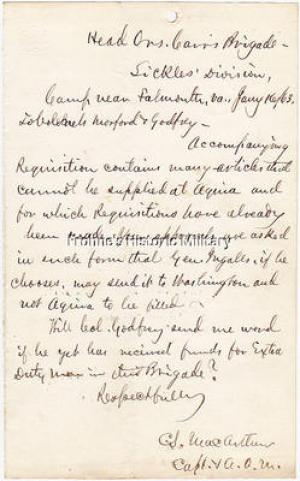 Head Qrs. Carr's Brigade -
Sickles' Division,
Camp near Falmouth, Va. Jany 16/63.
To Colonels Morford & Godfrey -
Accompanying
Requisition contains many articles that
cannot be supplied at Aquia and
for which Requisitions have already
been made. Your approval are asked
in such form that Gen. Ingalls, if he
chooses, may send it to Washington and
not Aquia to be filled -
Will Col. Godfrey send me word
if he yet has received funds for Extra
Duty men in this Brigade?
Respectfully
C. S. MacArthur
Capt. & A. Q. M.
Frohne's Historic Military